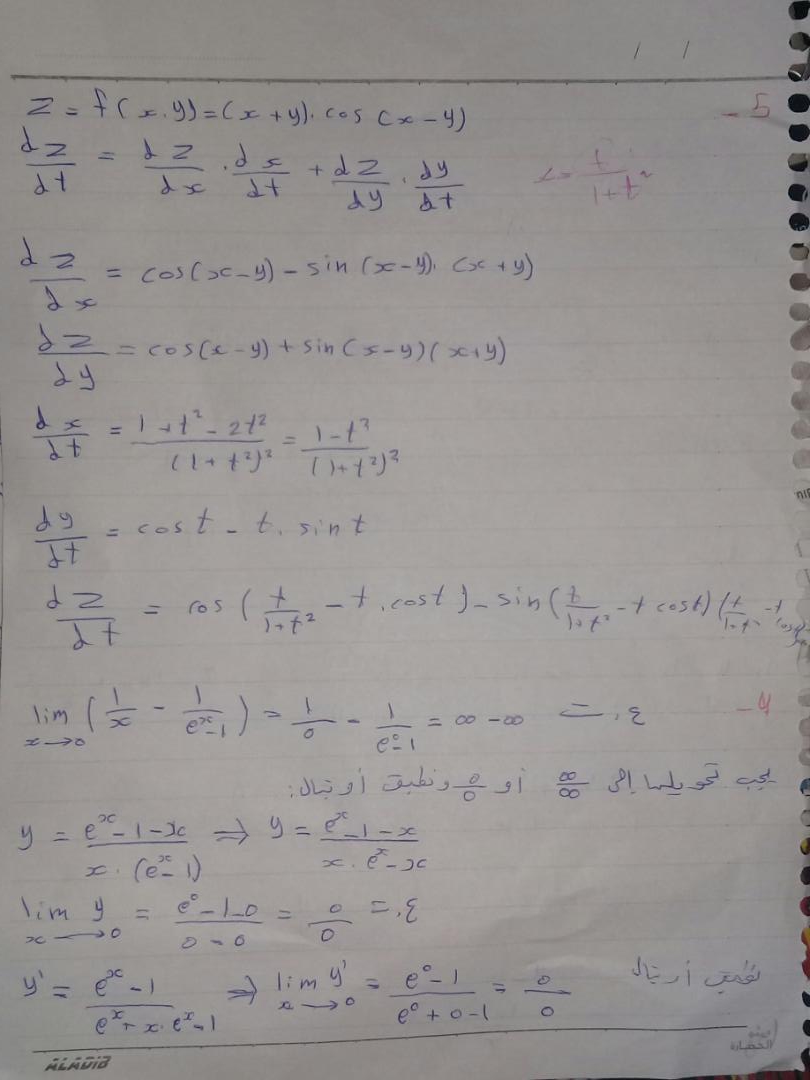 z = f(x.y) = (x+y). cos(x-y) -5
dz/dt = dz/dx . dx/dt + dz/dy . dy/dt t/1+t²
dz/dx = cos(x-y) - sin(x-y). (x+y)
dz/dy = cos(x-y) + sin(x-y)(x+y)
dx/dt = 1+t²-2t²/(1+t²)² = 1-t²/(1+t²)²
dy/dt = cost - t. sint
dz/dt = cos(t/1+t² - t.cost) - sin(t/1+t² - t cost)(t/1+t² - t cost)
lim x→0 (1/x - 1/e^x-1) = 1/0 - 1/e⁰-1 = ∞ - ∞ ع.ت
يجب تحويلها إلى ∞/∞ أو 0/0 ونطبق أوبتال:
y = e^x-1-x/x.(e^x-1) ⇒ y = e^x-1-x/x.e^x-x
lim x→0 y = e⁰-1-0/0-0 = 0/0 = ع.ت
y' = e^x-1/e^x+x.e^x-1 ⇒ lim x→0 y' = e⁰-1/e⁰+0-1 = 0/0 نطبق أوبتال
ALADIB